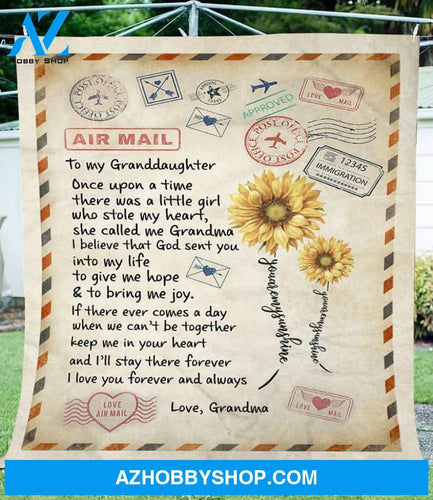 AZ
HOBBY SHOP
POST OFFICE
APPROVED
LOVE MAIL
POST OFFICE
12345
IMMIGRATION
AIR MAIL
To my Granddaughter
Once upon a time
there was a little girl
who stole my heart,
she called me Grandma
I believe that God sent you
into my life
to give me hope
& to bring me joy.
If there ever comes a day
when we can't be together
keep me in your heart
and I'll stay there forever
I love you forever and always
Love, Grandma
youaremysunshine
youaremysunshine
LOVE
AIR MAIL
LOVE MAIL
AZHOBBYSHOP.COM